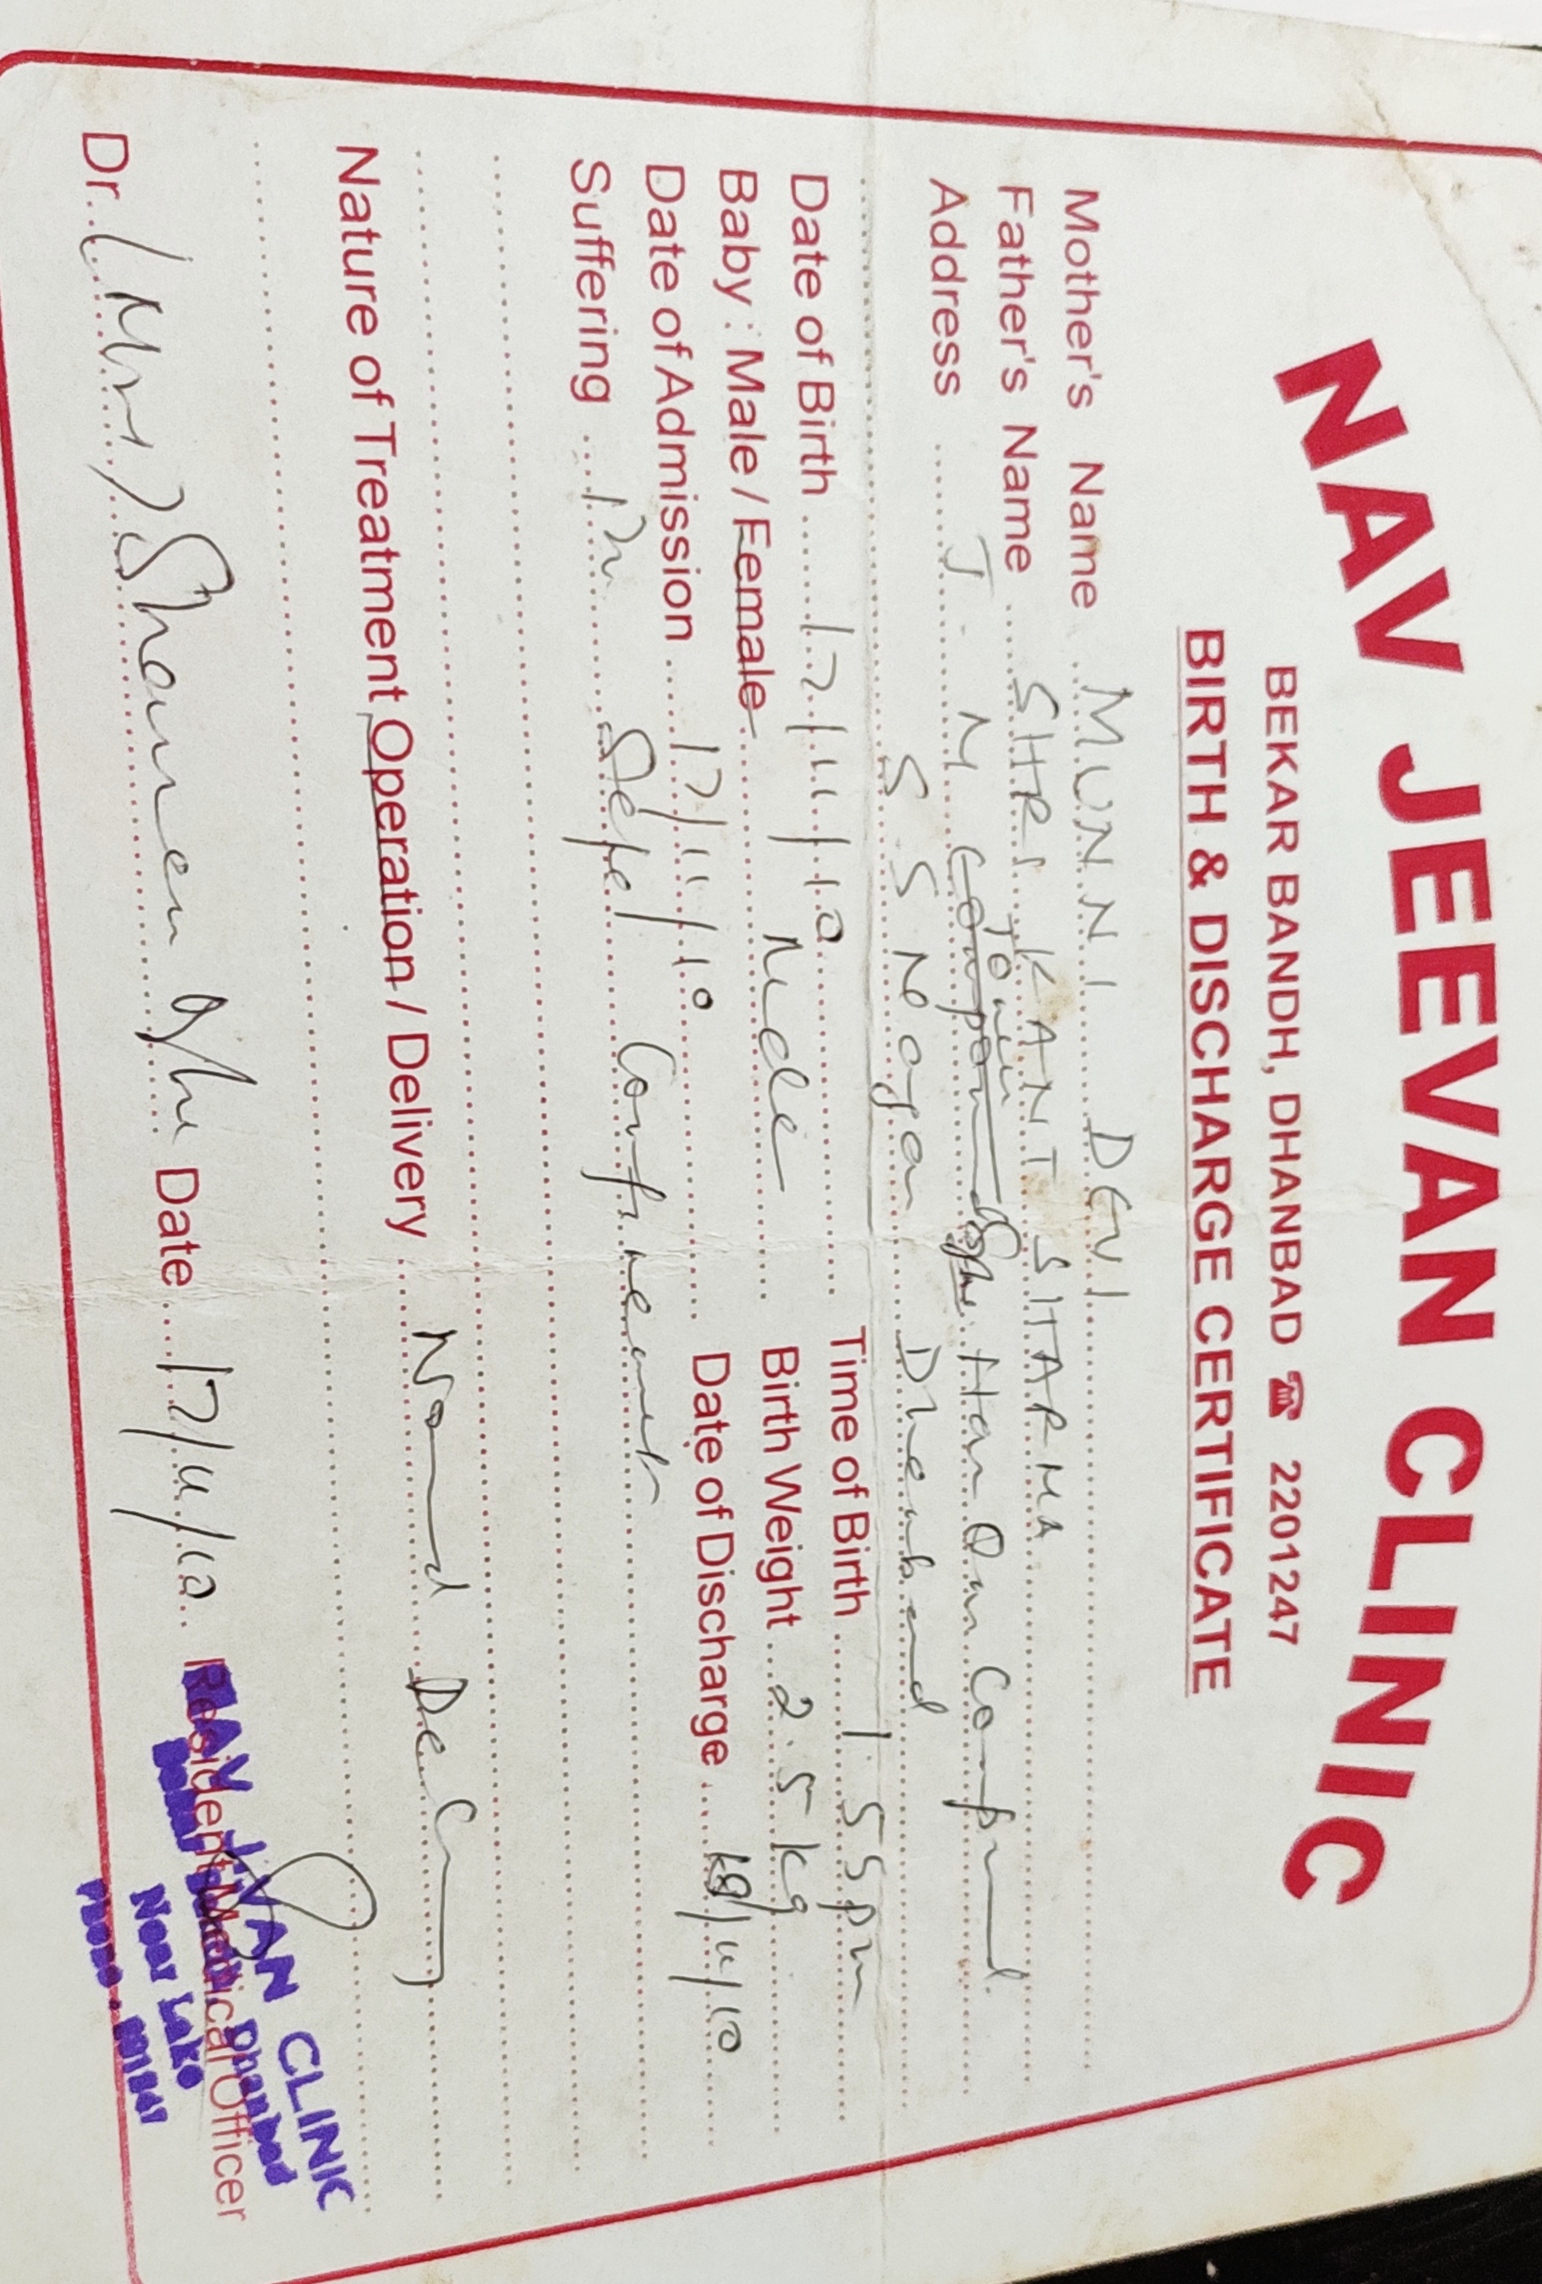 NAV JEEVAN CLINIC
BEKAR BANDH, DHANBAD ☎ 2201247
BIRTH & DISCHARGE CERTIFICATE
Mother's Name MUNNI DEVI
Father's Name SHRI KANT SHARMA
Address J. M Har Om Compound
S S Nagar Dhanbad
Date of Birth 17/11/10 Time of Birth 1 55 pm
Baby : Male / Female Male Birth Weight 2.5 kg
Date of Admission 17/11/10 Date of Discharge /11/10
Suffering Confinement
Nature of Treatment Operation / Delivery
Dr. (Mrs) Date 17/11/10 Resident Medical Officer
NAV JIVAN CLINIC
Dhanbad
Near Lake
Phone